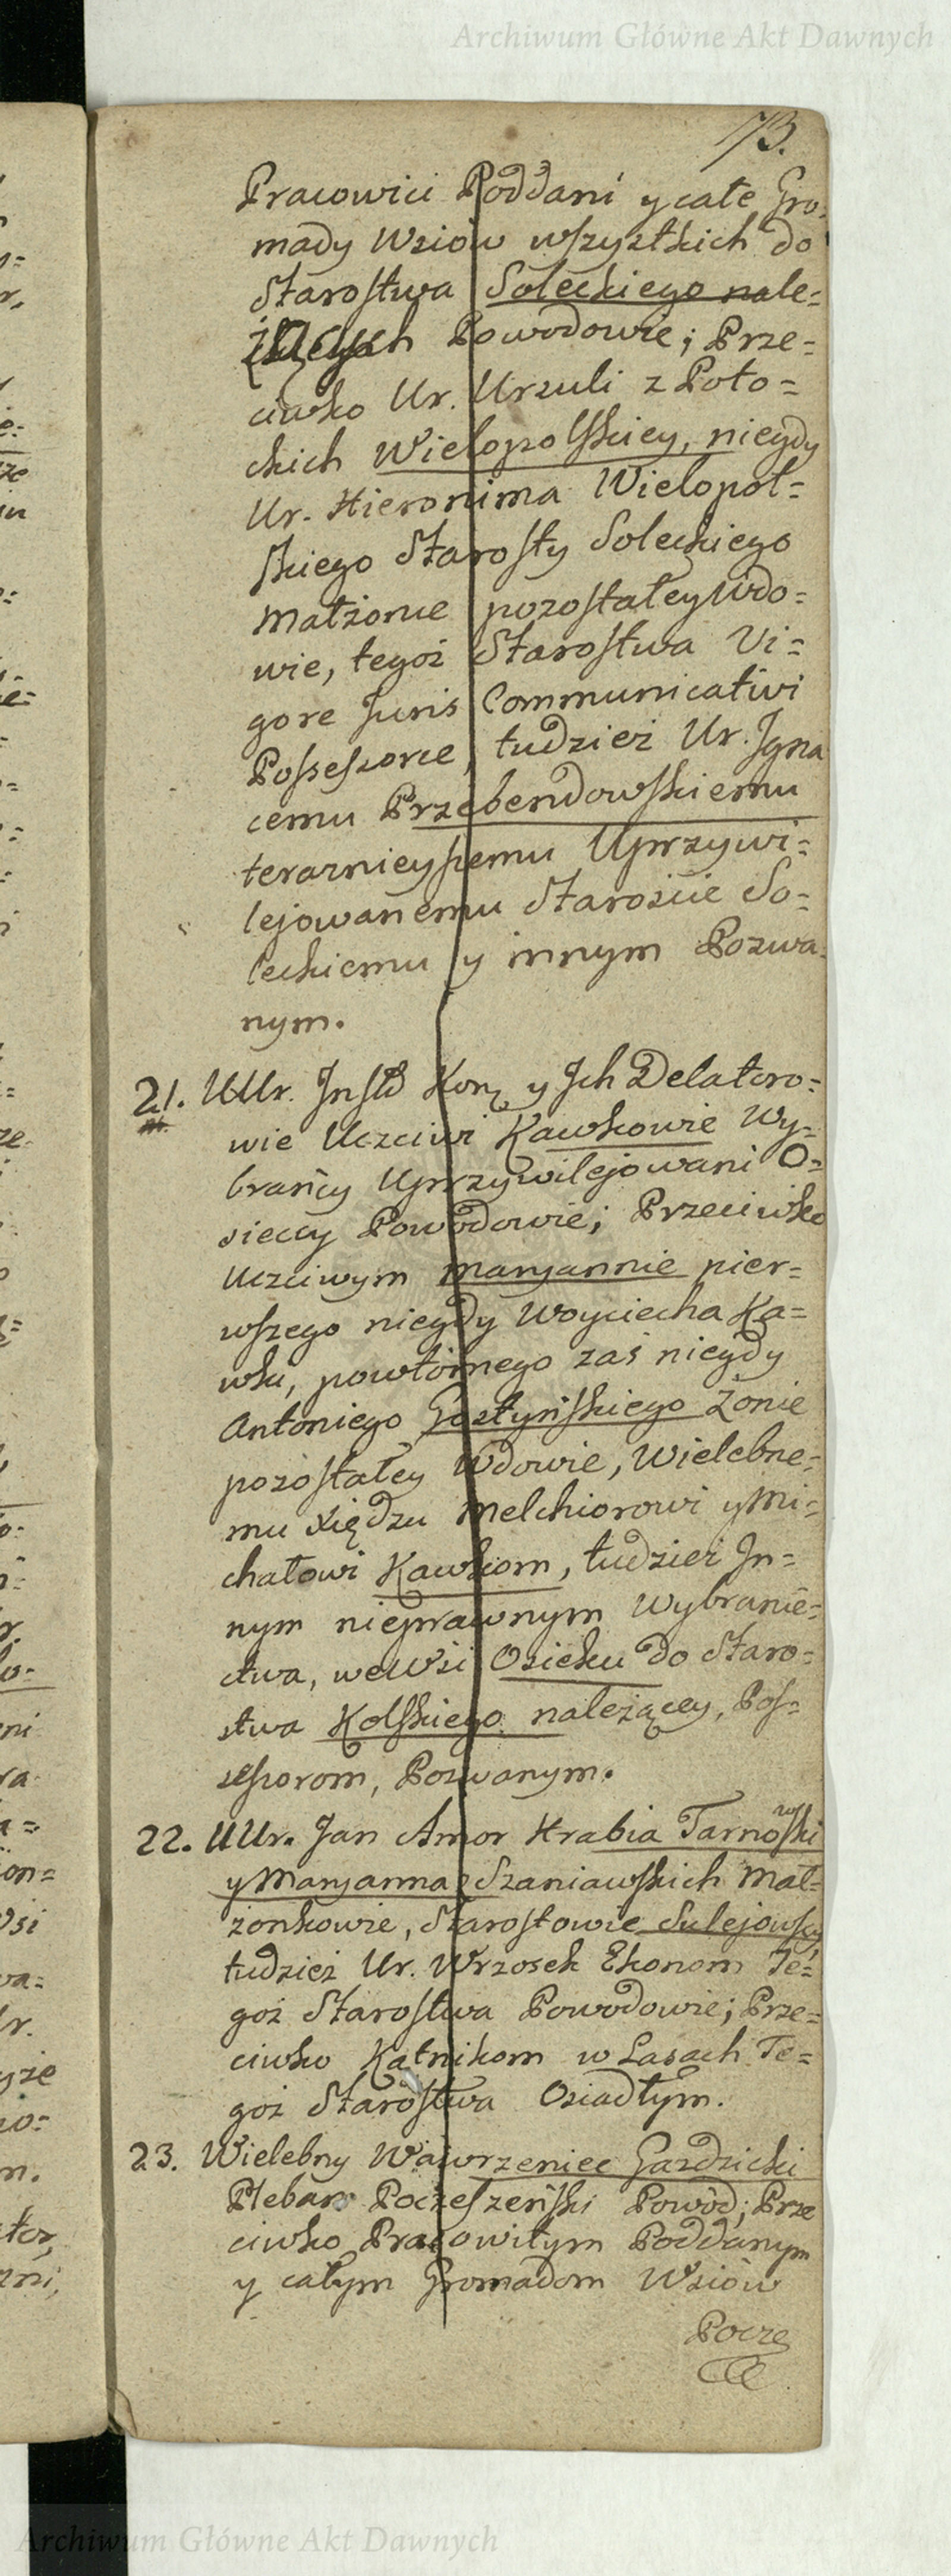 Archiwum Główne Akt Dawnych
73.
Pracowici Poddani y całe Gro-
mady Wsiow wszystkich do
Starostwa Soleckiego nale=
żących Powodowie; Prze=
ciwko Ur. Urzuli z Poto=
ckich Wielopolskiey, niegdy
Ur. Hieronima Wielopol=
skiego Starosty Soleckiego
Małżonce pozostałey Wdo=
wie, tegoż Starostwa Vi=
gore Juris Communicativi
Possessorce, tudzież Ur. Jgna
cemu Przebendowskiemu
teraznieyszemu Uprzywi=
lejowanemu Staroście So=
leckiemu y innym Pozwa-
nym.
21. UUr. Jnstō Korą y Jch Delatoro=
wie Uczciwi Kawkowie Wy=
brańcy Uprzywilejowani O=
sieccy Powodowie; Przeciwko
Uczciwym Maryannie pier=
wszego niegdy Woyciecha Ka=
wki, powtórnego zaś niegdy
Antoniego Gostyńskiego Żonie
pozostałey Wdowie, Wielebne=
mu Xiędzu Melchiorowi y Mi=
chałowi Kawkom, tudzież Jn=
nym nieprawnym Wybranie=
ctwa, we Wsi Osieku do Staro=
stwa Kolskiego należącey, Pos=
sessorom, Pozwanym.
22. UUr. Jan Amor Hrabia Tarnowski
y Maryanna z Szaniawskich Mał=
żonkowie, Starostowie Sulejowscy
tudzież Ur. Wrzosek Ekonom Te=
goż Starostwa Powodowie; Prze=
ciwko Kątnikom w Lasach Te=
goż Starostwa Osiadłym.
23. Wielebny Wawrzeniec Gazdzicki
Pleban Poczeszeński Powód; Prze
ciwko Pracowitym Poddanym
y całym Gromadom Wsiów
Pocze
Archiwum Główne Akt Dawnych